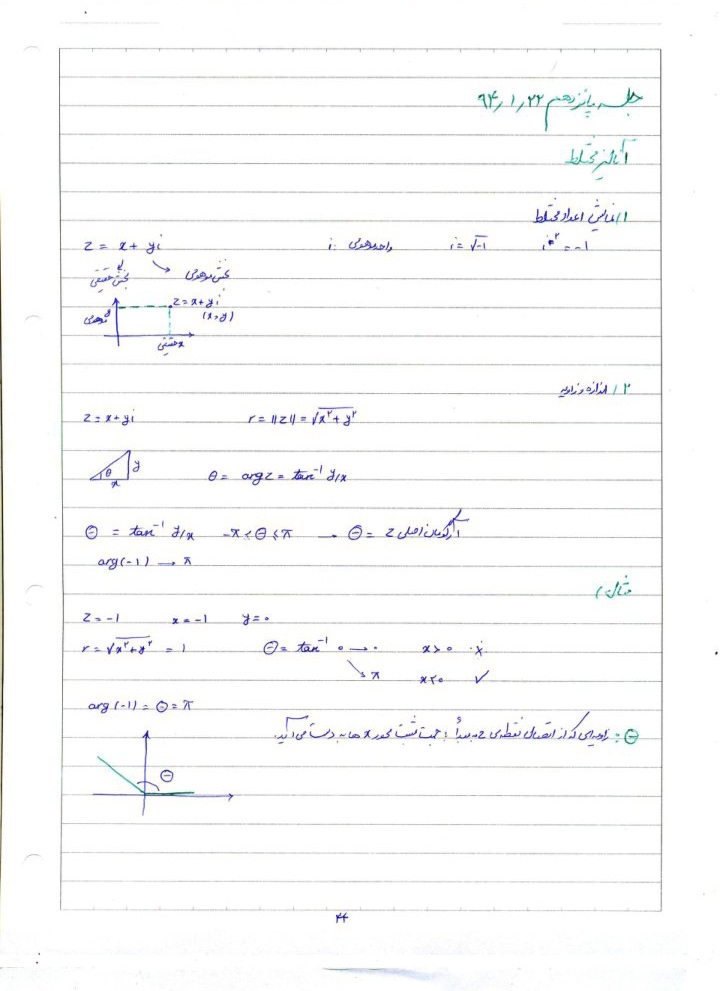 جلسه پانزدهم ۹۴,۱,۲۲
آنالیز مختلط
۱) نمایش اعداد مختلط
z = x + yi    i: واحد موهومی    i = √-1    i^۲ = -1
بخش حقیقی    بخش موهومی
z = x + yi
(x,y)
موهومی y
حقیقی x
۲) اندازه و زاویه
z = x + yi    r = ||z|| = √x^۲ + y^۲
θ    y
x
θ = arg z = tan^-1 y/x
Θ = tan^-1 y/x    -π < Θ ≤ π → Θ = آرگومان اصلی z
arg(-1) → π
مثال)
z = -1    x = -1    y = ۰
r = √x^۲ + y^۲ = 1    Θ = tan^-1 ۰ → ۰    x > ۰    ×
↘ π    x < ۰    ✓
arg(-1) = Θ = π
Θ: زاویه‌ای که از اتصال نقطه‌ی z به مبدأ با جهت مثبت محور x ها به دست می‌آید.
Θ
۴۴